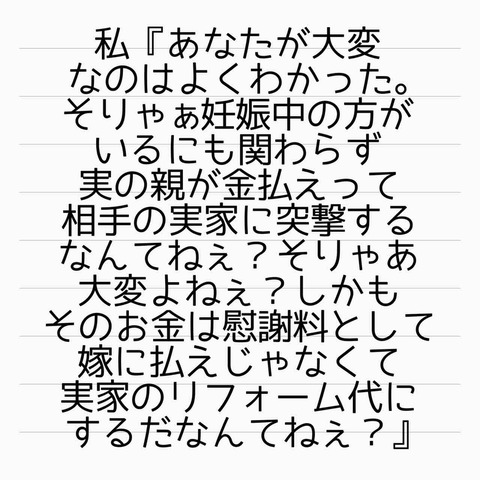 私『あなたが大変
なのはよくわかった。
そりゃぁ妊娠中の方が
いるにも関わらず
実の親が金払えって
相手の実家に突撃する
なんてねぇ？そりゃあ
大変よねぇ？しかも
そのお金は慰謝料として
嫁に払えじゃなくて
実家のリフォーム代に
するだなんてねぇ？』